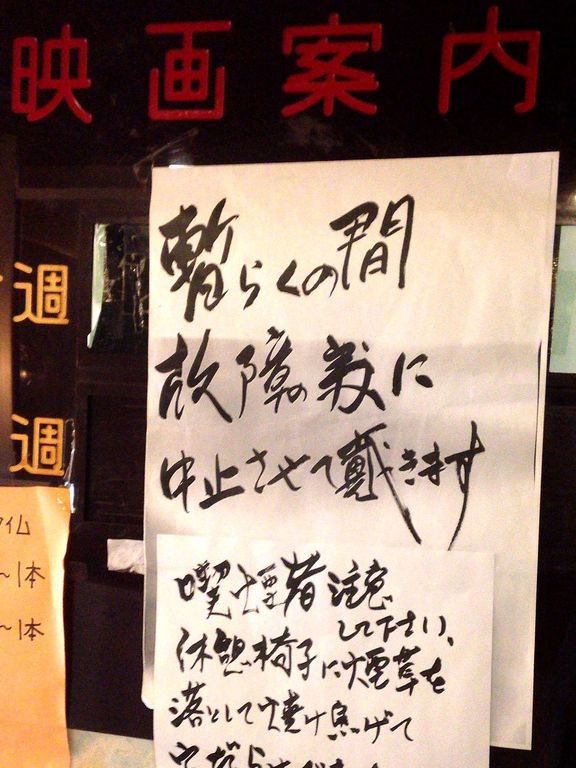 映画案内
暫らくの間
故障の為に
中止させて戴きます
喫煙者注意
して下さい、
休憩椅子に煙草を
落として焼け焦げて
穴だらけ
週
週
イム
～1本
～1本